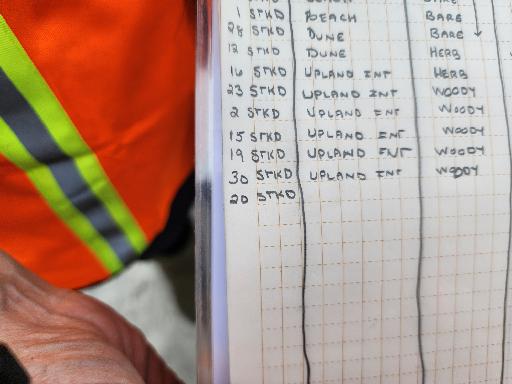 1 STKD BEACH BARE
28 STKD DUNE BARE ↓
12 STKD DUNE HERB
16 STKD UPLAND INT HERB
23 STKD UPLAND INT WOODY
2 STKD UPLAND INT WOODY
15 STKD UPLAND INT WOODY
19 STKD UPLAND INT WOODY
30 STKD UPLAND INT WOODY
20 STKD